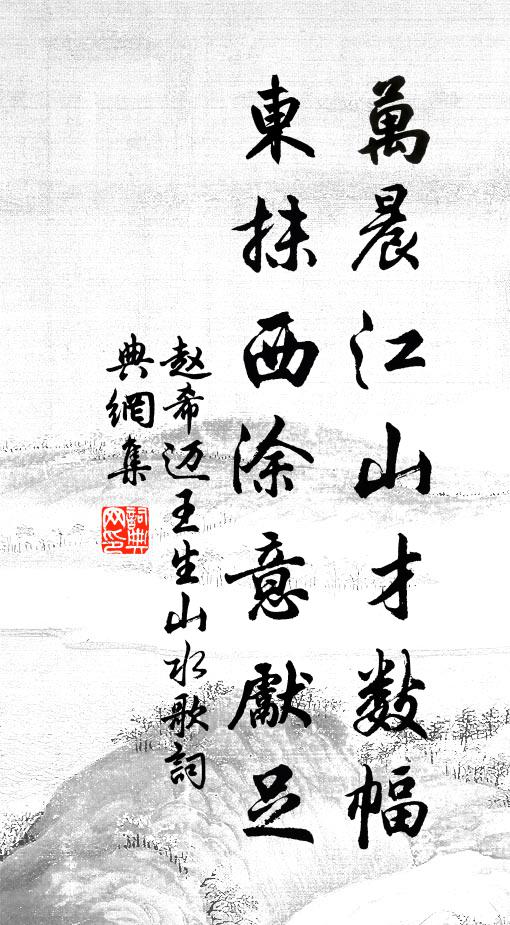 萬晨江山才数幅
東抹西涂意獻足
赵希迈王生山水歌詞
典網集
詞典
网印